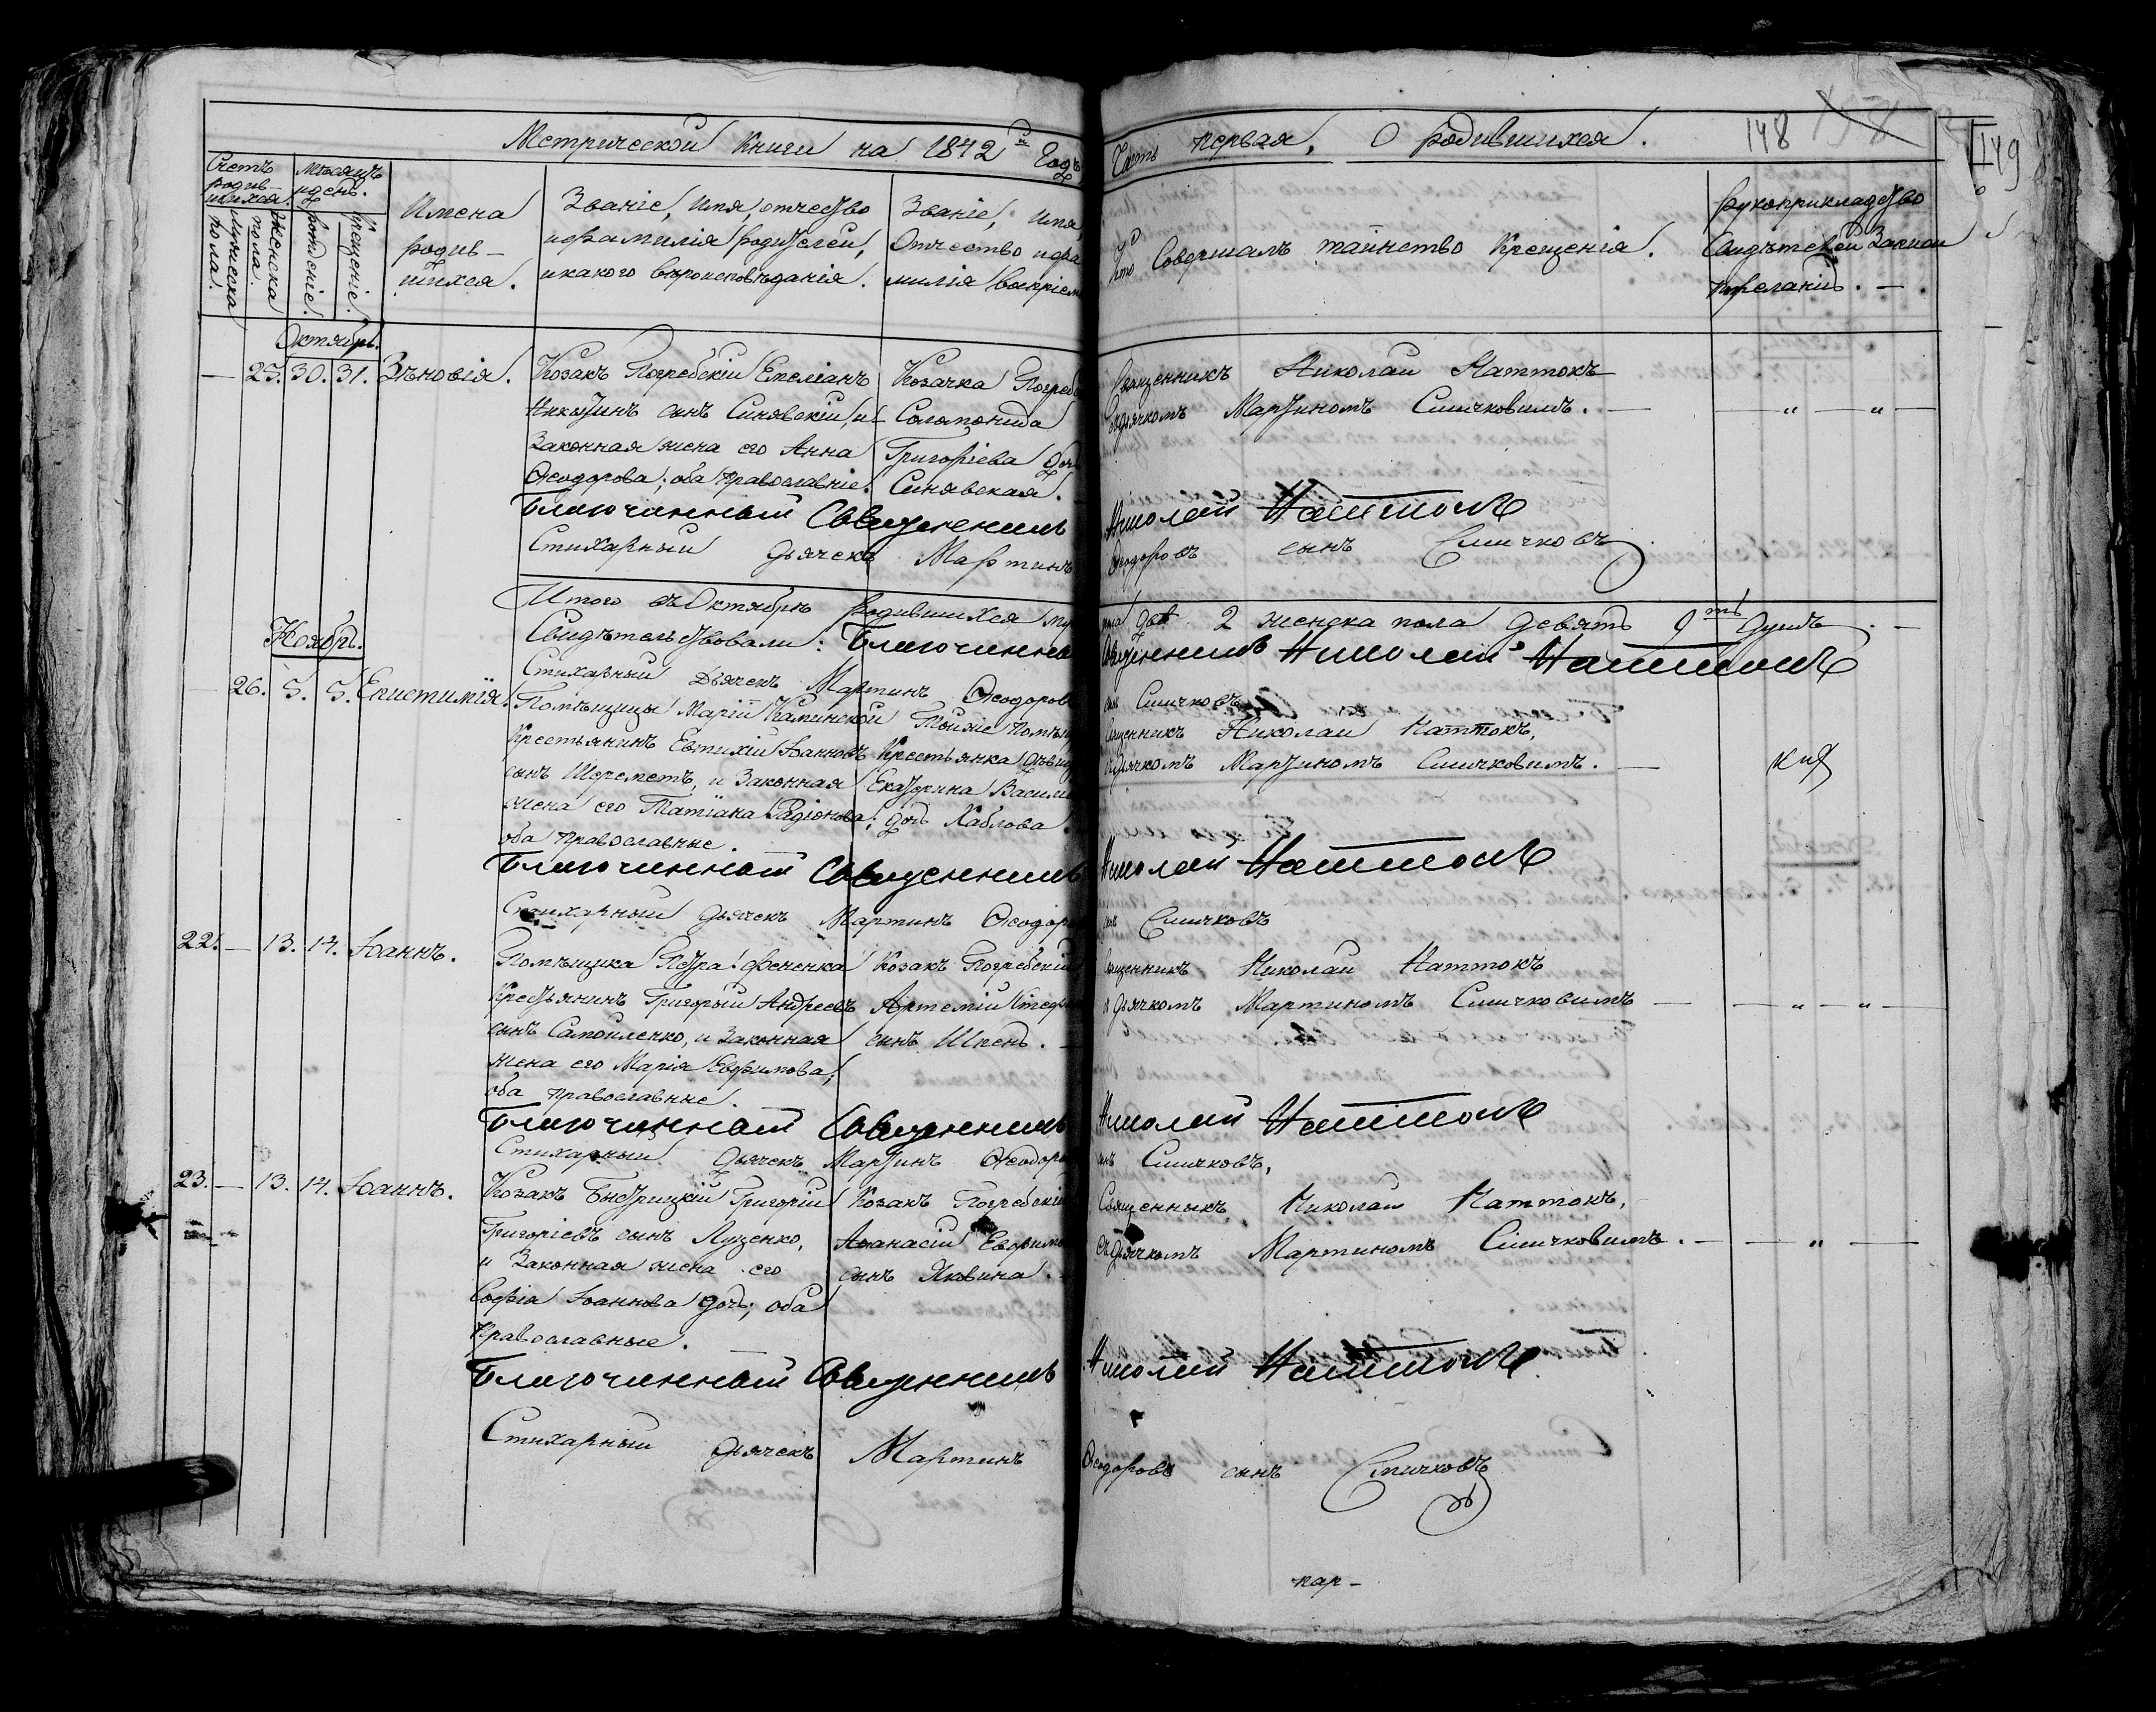 Метрической книги на 1842й Годъ
Часть первая, О родившихся.
148
149
Счетъ родив-шихся.
Мѣсяцъ и день.
мужеска пола.
женска пола.
рожденіе.
крещеніе.
Имена родив-шихся.
Званіе, имя, отчество
и фамилія родителей,
и какого вѣроисповѣданія.
Званіе, имя,
Отчество и фа
милія воспріем
Кто Совершалъ таинство Крещенія.
Рукоприкладство
Свидѣтелей записи
по желанію. —
Октябрь.
— 25. 30. 31. Зѣновія.
Козакъ Погребскій Емеліанъ
Никитинъ сынъ Синявскій, и
Законная жена его Анна
Ѳеодорова; оба православніе.
Козачка Погреб
Соломонида
Григоріева доч
Синявская.
Священникъ Николай Наттокъ
съ дьячкомъ Мартиномъ Сличковимъ. —
Благочинный Священникъ Николай Наттокъ
Стихарный дьячекъ Мартинъ Ѳеодоровъ сынъ Сличковъ
Итого въ Октябрѣ родившихся му пола два 2 женска пола девять 9ть душъ. —
Свидѣтельствовали: Благочинны Священникъ Николай Наттокъ
Стихарный Дьячекъ Мартинъ Ѳеодоров сынъ Сличковъ
Ноябрь.
— 26. 5. 5. Епистимія.
Помѣщицы Маріи Каминской
Крестьянинъ Евтихій Іоанновъ
сынъ Шереметъ, и Законная
жена его Татіана Радіонова;
оба православные.
Тойже Помѣщ
Крестьянка дѣвиц
Екатерина Васили
дочь Хаблова.
Священникъ Николай Наттокъ,
съ дьячкомъ Мартиномъ Сличковимъ. —
Благочинный Священникъ Николай Наттокъ
Стихарный дьячекъ Мартинъ Ѳеодоро сынъ Сличковъ
22. — 13. 14. Іоаннъ.
Помѣщика Петра Фененка
Крестьянинъ Григорій Андреевъ
сынъ Самойленко, и Законная
жена его Марія Евфимова;
оба православные.
Козакъ Погребскій
Артемій Стефа
сынъ Шпень. —
Священникъ Николай Наттокъ
съ Дьячкомъ Мартиномъ Сличковимъ —
Благочинный Священникъ Николай Наттокъ
Стихарный Дьячекъ Мартинъ Ѳеодоро сынъ Сличковъ,
23. — 13. 14. Іоаннъ.
Козакъ Быстрицкій Григорій
Григоріевъ сынъ Луценко,
и Законная жена его
Софія Іоаннова дочь; оба
Православные.
Козакъ Погребскій
Аѳанасій Евфимо
сынъ Яковина.
Священникъ Николай Наттокъ,
съ дьячкомъ Мартиномъ Сличковимъ. —
Благочинный Священникъ Николай Наттокъ.
Стихарный дьячекъ Мартинъ Ѳеодоровъ сынъ Сличковъ
кар-